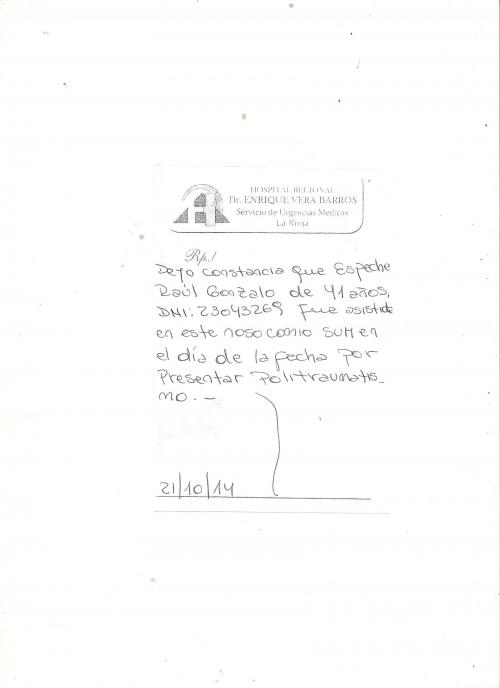 HOSPITAL REGIONAL
Dr. ENRIQUE VERA BARROS
Servicio de Urgencias Medicas
La Rioja
Rp.!
Dejo constancia que Espeche
Raúl Gonzalo de 41 años,
DNI: 23043269 fue asistido
en este nosocomio SUM en
el día de la fecha por
Presentar Politraumatis_
mo. -
21/10/14